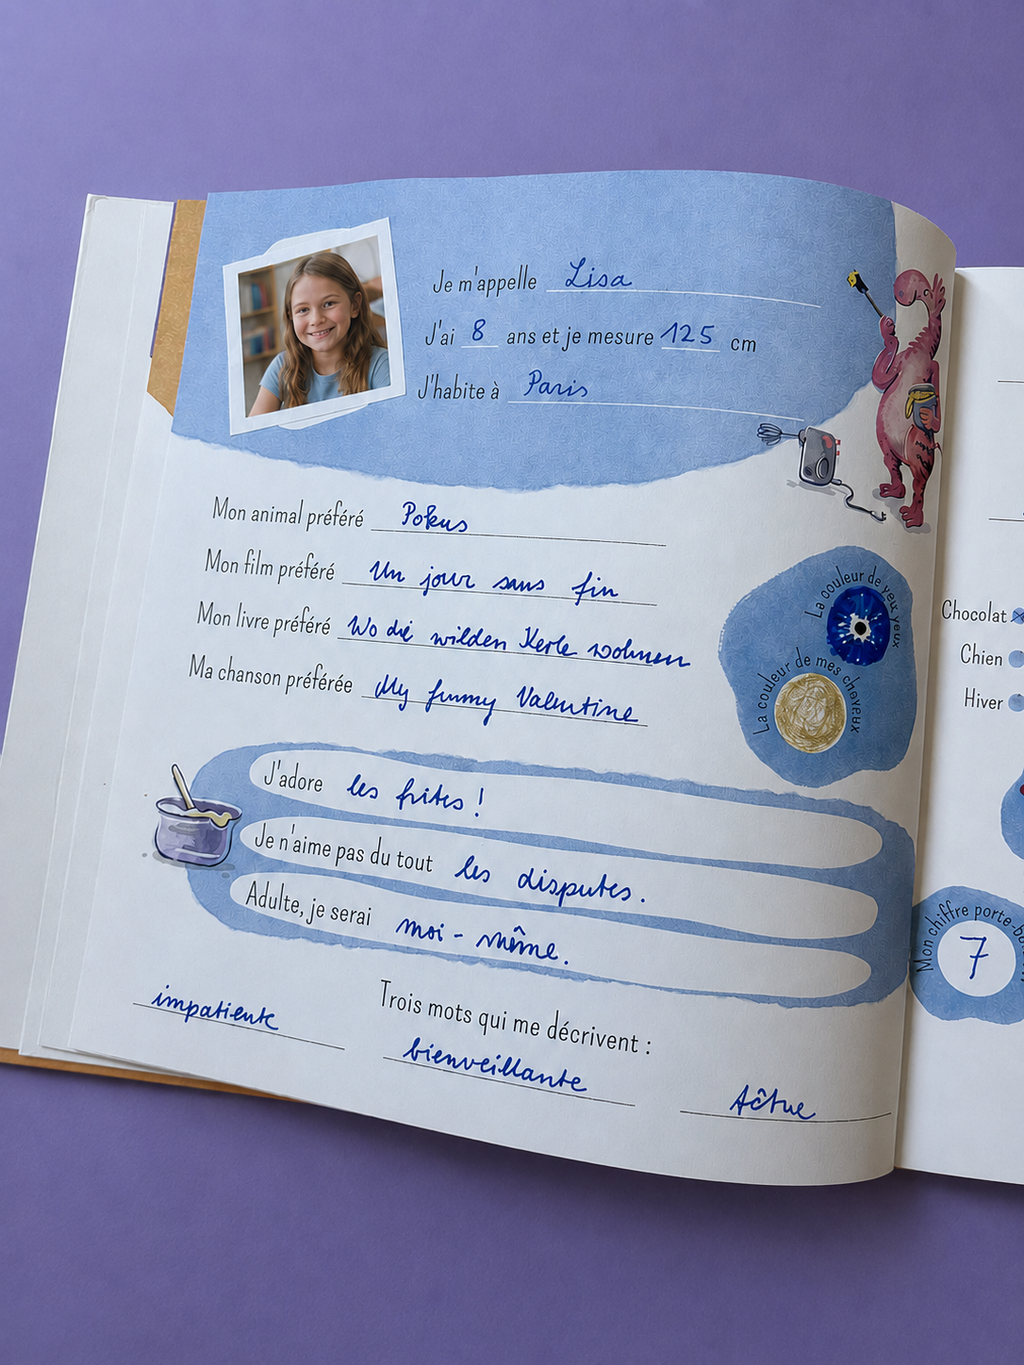 Je m'appelle Lisa
J'ai 8 ans et je mesure 125 cm
J'habite à Paris
Mon animal préféré Pokus
Mon film préféré Un jour sans fin
Mon livre préféré Wo die wilden Kerle wohnen
Ma chanson préférée My funny Valentine
La couleur de yeux yeux
La couleur de mes cheveux
J'adore les frites !
Je n'aime pas du tout les disputes.
Adulte, je serai moi-même.
Trois mots qui me décrivent :
impatiente
bienveillante
Chocolat
Chien
Hiver
Mon chiffre porte-
7